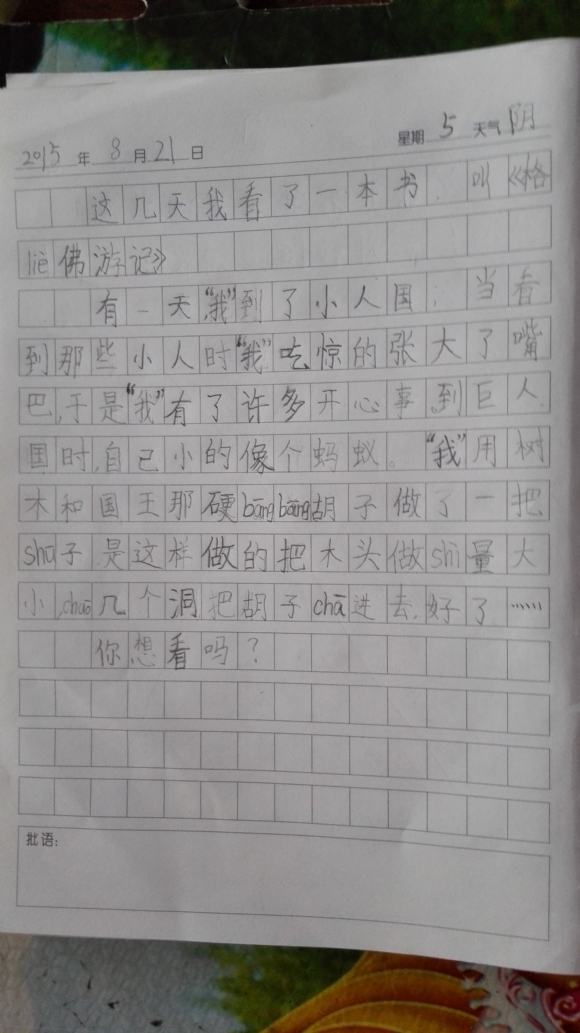 2015 年 8 月 21 日 星期 5 天气 阴
这几天我看了一本书.叫《格
liè佛游记》
有一天,“我”到了小人国,当看
到那些小人时“我”吃惊的张大了嘴
巴,于是“我”有了许多开心事,到巨人
国时,自己小的像个蚂蚁。“我”用树
木和国王那硬bāngbāng胡子做了一把
shū子.是这样做的把木头做shì量大
小,chuō几个洞把胡子chā进去,好了……
你想看吗?
批语: